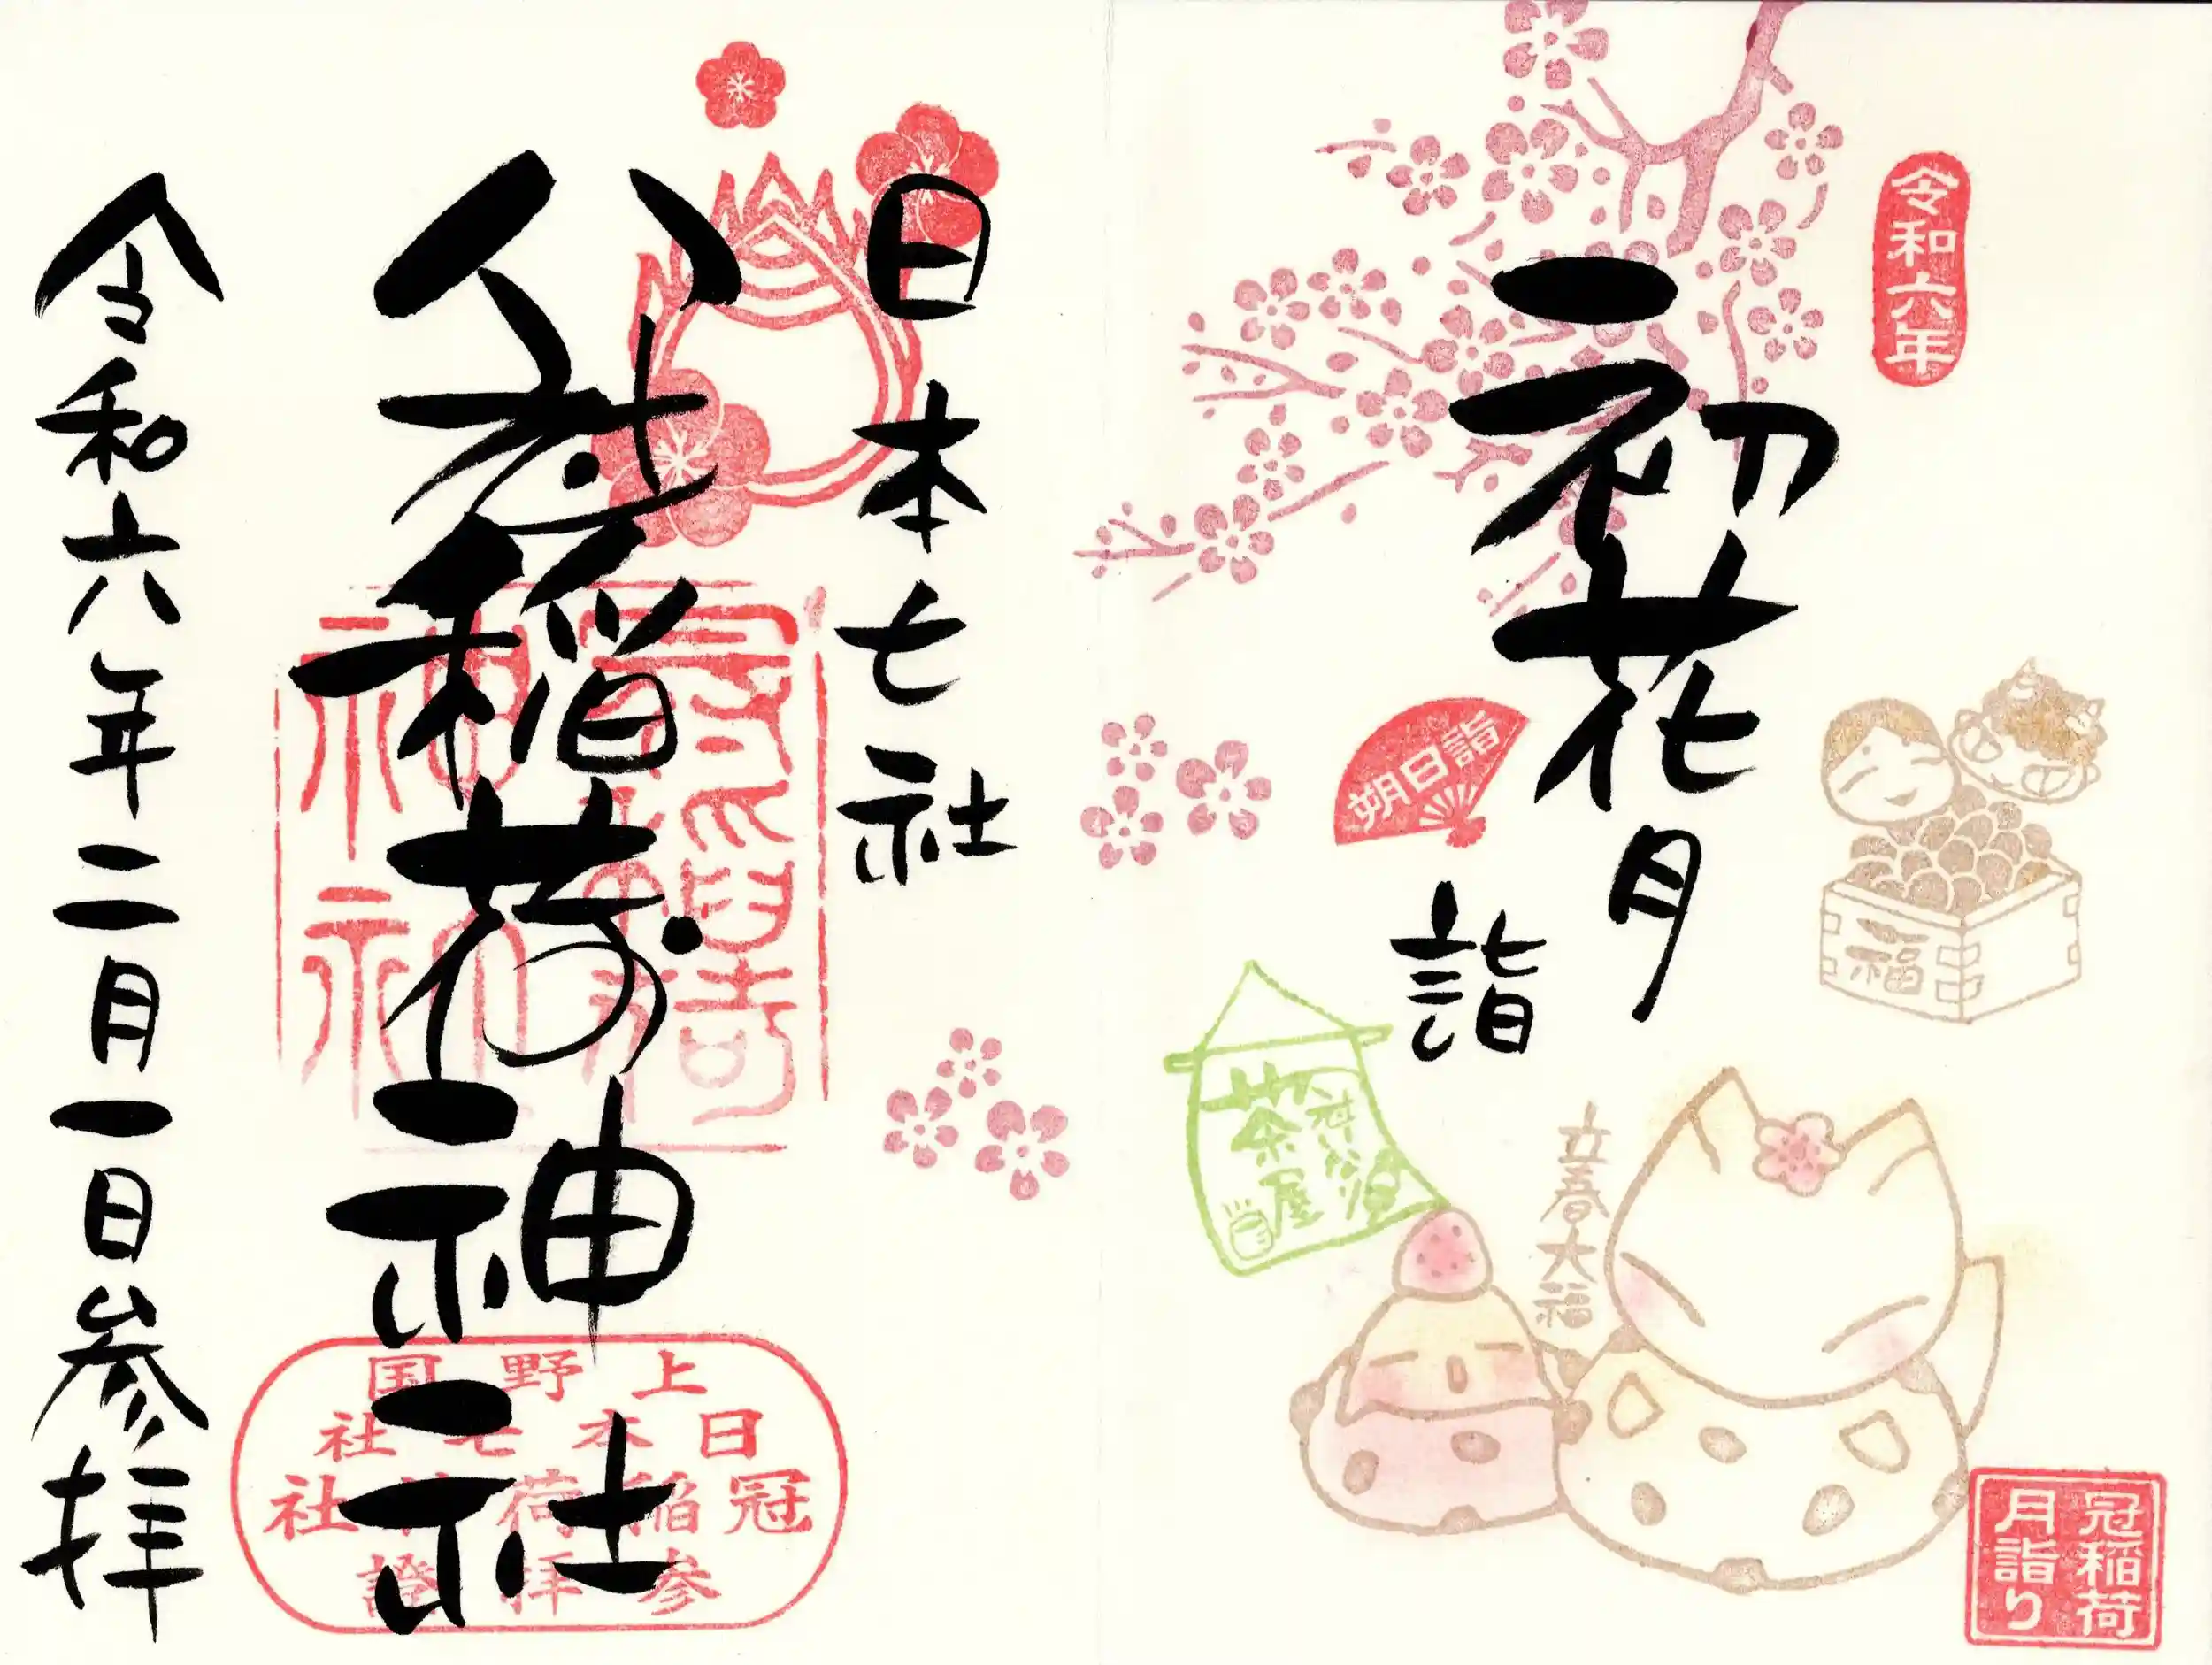 令和六年
初花月
詣
朔日詣
福
冠いなり
茶屋
立春大福
冠稲荷
月詣り
日本七社
冠稲荷神社
上野国
日本七社
冠稲荷神社
参拝證
令和六年二月一日参拝